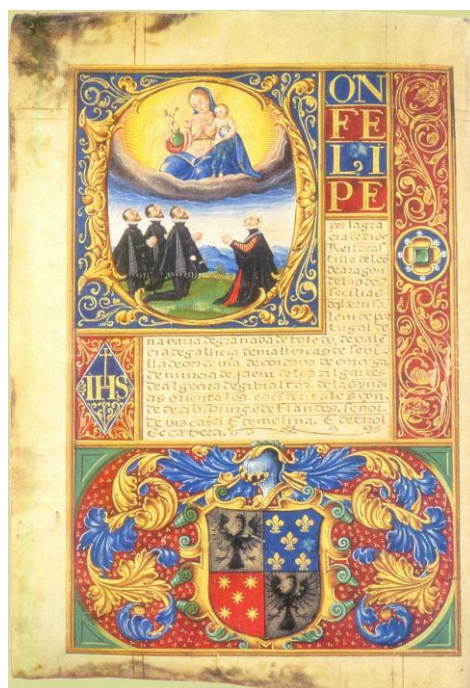 ON
FE
LI
PE
por la gra
cia de dios
Rei de cas
tilla de leo
de aragon
de las dos
secilias
de
lem de po
rtugal de
na barra de granada de toledo de va
cia de galicia de mallorcas de sevi
lla de cor de
de murcia de jaem de los algarves
de algecira de gibraltar de las yndi
as orientales e ocidentales con
de de flandes, señor
de vis caya E de molina. E de tirol
IHS